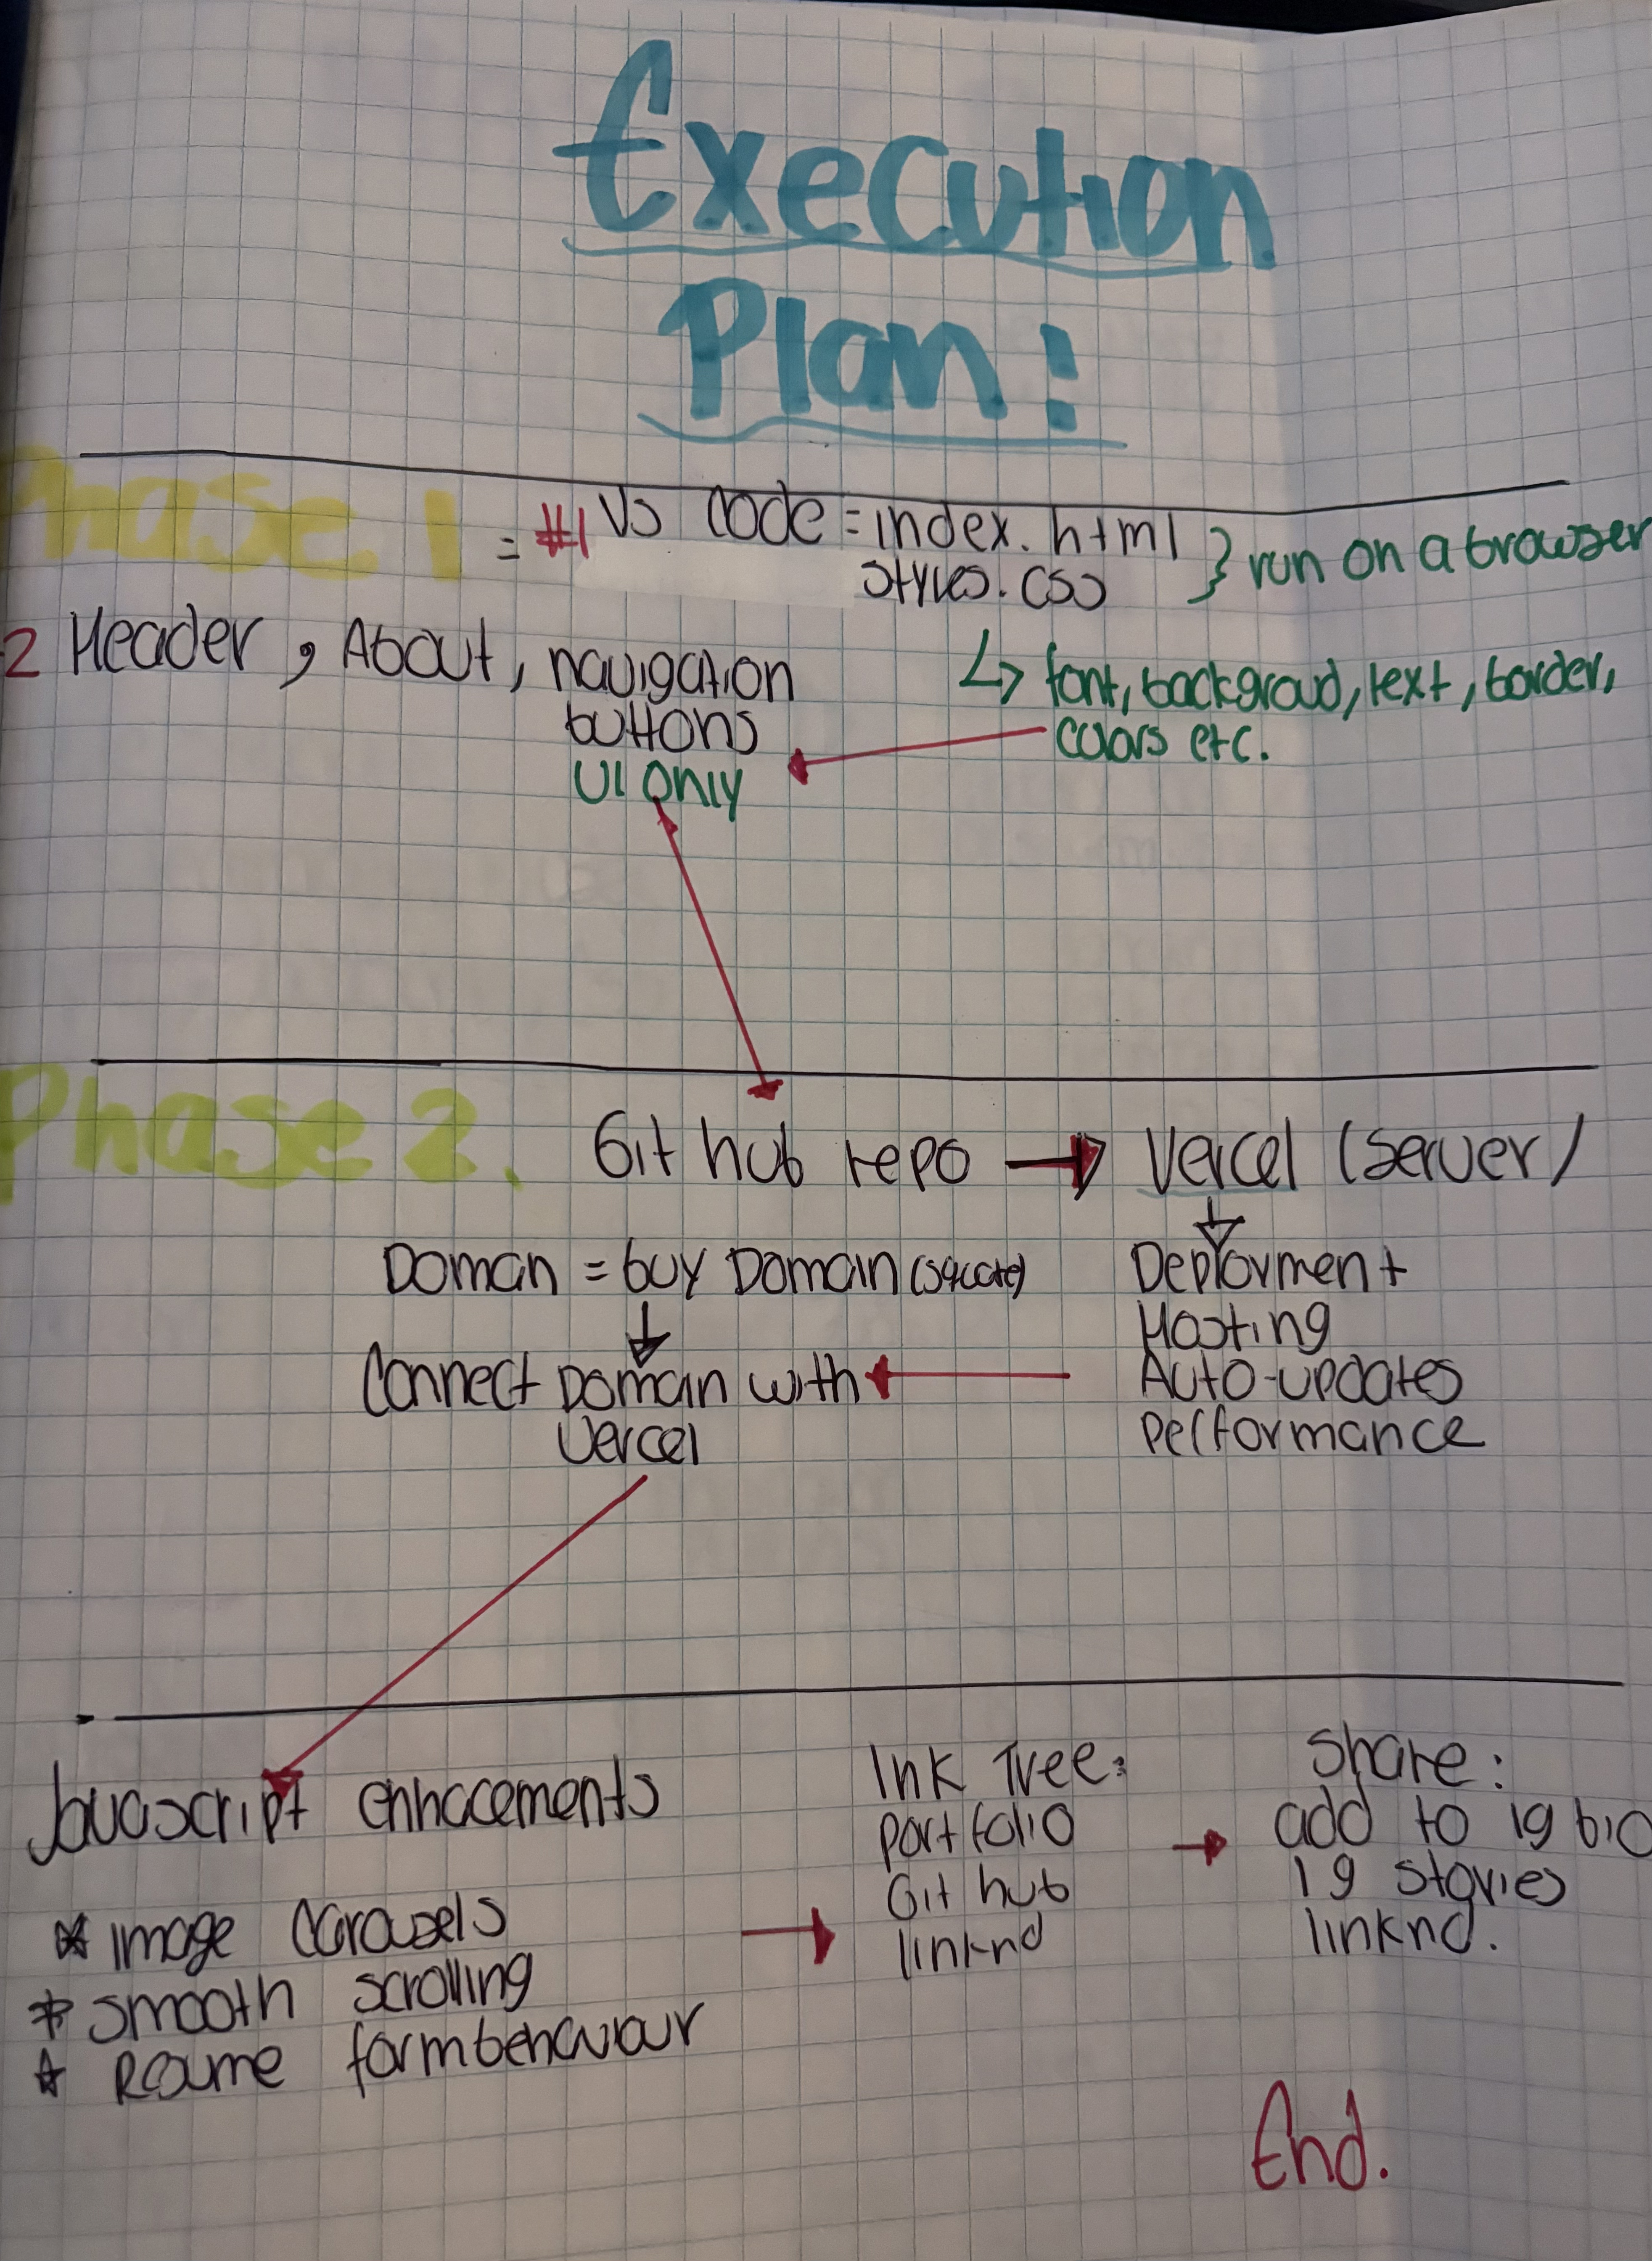 Execution
Plan:
Phase 1
= #1 VS Code = index.html } run on a browser
styles.css
2 Header, About, navigation
buttons
UI Only
↳ font, backgroud, text, border,
colors etc.
Phase 2.
Git hub repo → Vercel (server/
Doman = buy Domain (square)
↓
Connect Domain with
Vercel
↓
Deployment
Hosting
Auto-updates
performance
Javascript enhacements
* image carousels
* smooth scrolling
* Resume form behaviour
→
Ink Tree:
portfolio
Git hub
linknd
→
Share:
add to ig bio
ig stories
linknd.
End.